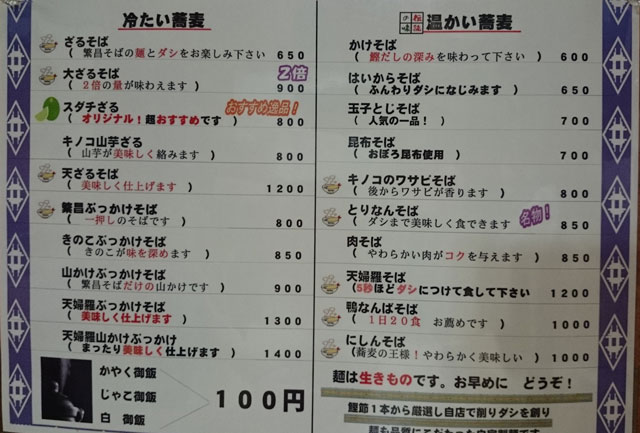 冷たい蕎麦
ざるそば
( 繁昌そばの麺とダシをお楽しみ下さい 650
大ざるそば 2倍
( 2倍の量が味わえます ) 900
スダチざる おすすめ逸品!
( オリジナル!超おすすめです ) 800
キノコ山芋ざる
( 山芋が美味しく絡みます ) 800
天ざるそば
( 美味しく仕上げます ) 1200
繁昌ぶっかけそば
( 一押しのそばです ) 800
きのこぶっかけそば
( きのこが味を深めます ) 850
山かけぶっかけそば
( 繁昌そばだけの山かけです ) 900
天婦羅ぶっかけそば
( 美味しく仕上げます ) 1300
天婦羅山かけぶっかけ
( まったり美味しく仕上げます ) 1400
かやく御飯
じゃこ御飯
白 御飯
100円
伝説の味
温かい蕎麦
かけそば
( 鰹だしの深みを味わって下さい ) 600
はいからそば
( ふんわりダシになじみます ) 650
玉子とじそば
( 人気の一品! ) 700
昆布そば
( おぼろ昆布使用 ) 700
キノコのワサビそば
( 後からワサビが香ります ) 800
とりなんそば 名物!
( ダシまで美味しく食できます 850
肉そば
( やわらかい肉がコクを与えます ) 850
天婦羅そば
(5秒ほどダシにつけて食して下さい 1200
鴨なんばそば
( 1日20食 お薦めです ) 1000
にしんそば
(蕎麦の王様!やわらかく美味しい ) 1000
麺は生きものです。お早めに どうぞ!
鰹節1本から厳選し自店で削りダシを創り